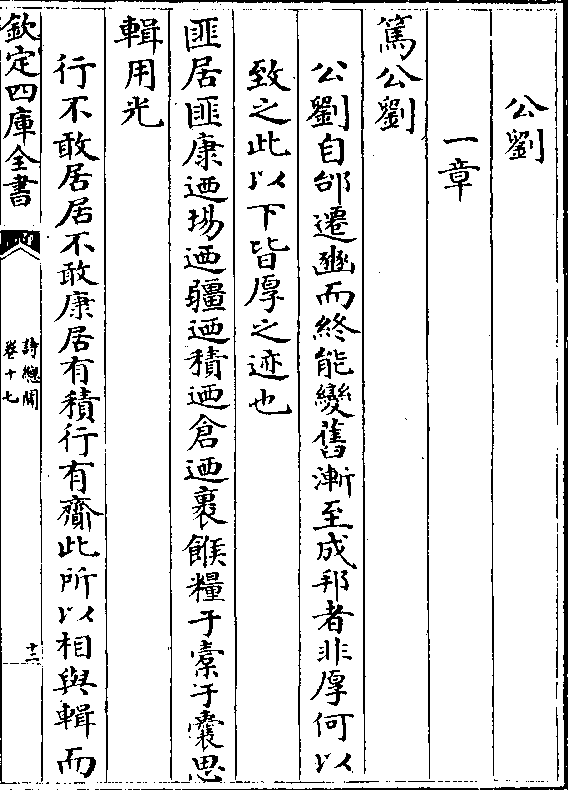 公劉
一章
篤公劉
公劉自邰遷豳而終能變舊漸至成邦者非厚何以
致之此以下皆厚之迹也
匪居匪康迺場迺疆迺積迺倉迺裹餱糧于橐于囊思
輯用光
行不敢居居不敢康居有積行有齎此所以相與輯而
欽定四庫全書
詩總聞
卷十七
十二